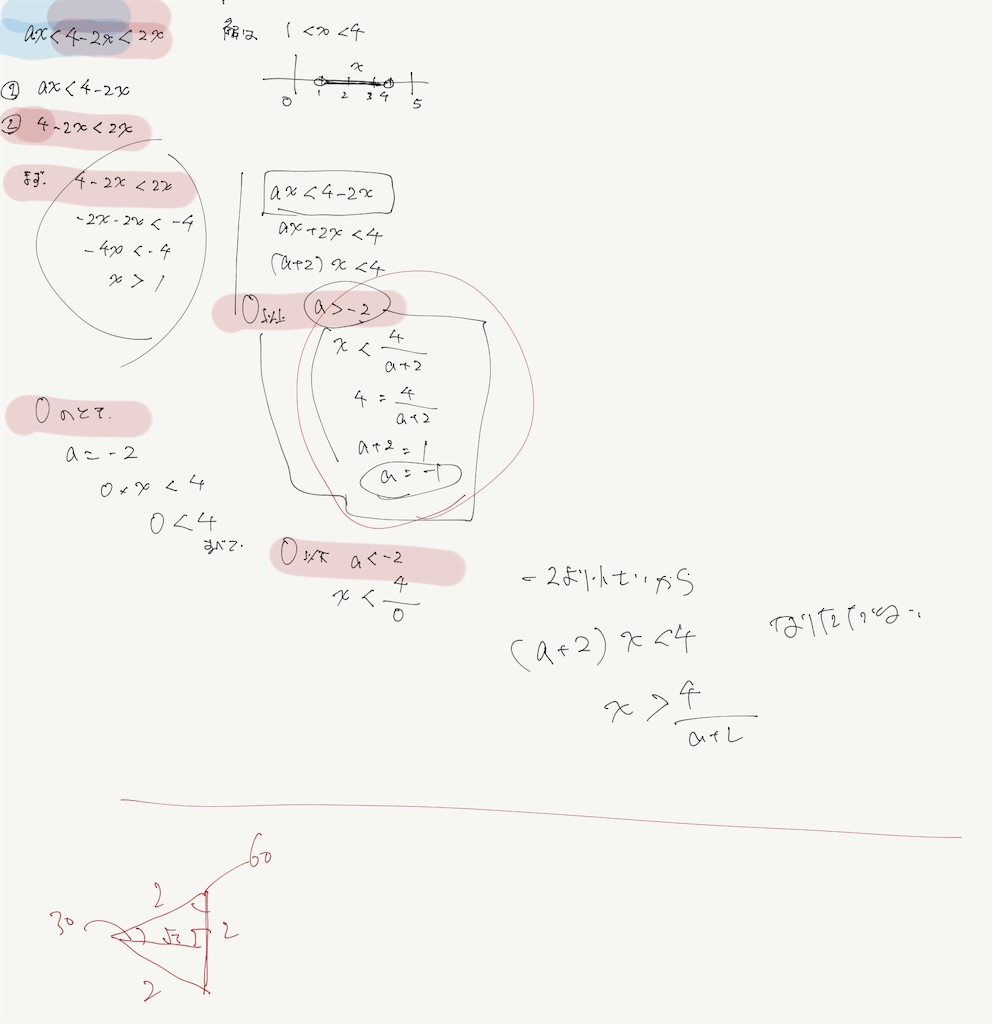 ax<4-2x<2x
解は 1<x<4
x
0 1 2 3 4 5
① ax<4-2x
② 4-2x<2x
まず. 4-2x<2x
-2x-2x<-4
-4x<-4
x>1
ax<4-2x
ax+2x<4
(a+2)x<4
0以上 a>-2
x<4/(a+2)
4=4/(a+2)
a+2=1
a=-1
0のとき.
a=-2
0×x<4
0<4
すべて.
0以下 a<-2
x<4/0
-2より小さいから
(a+2)x<4
x>4/(a+2)
60
2
30
√3
2
2